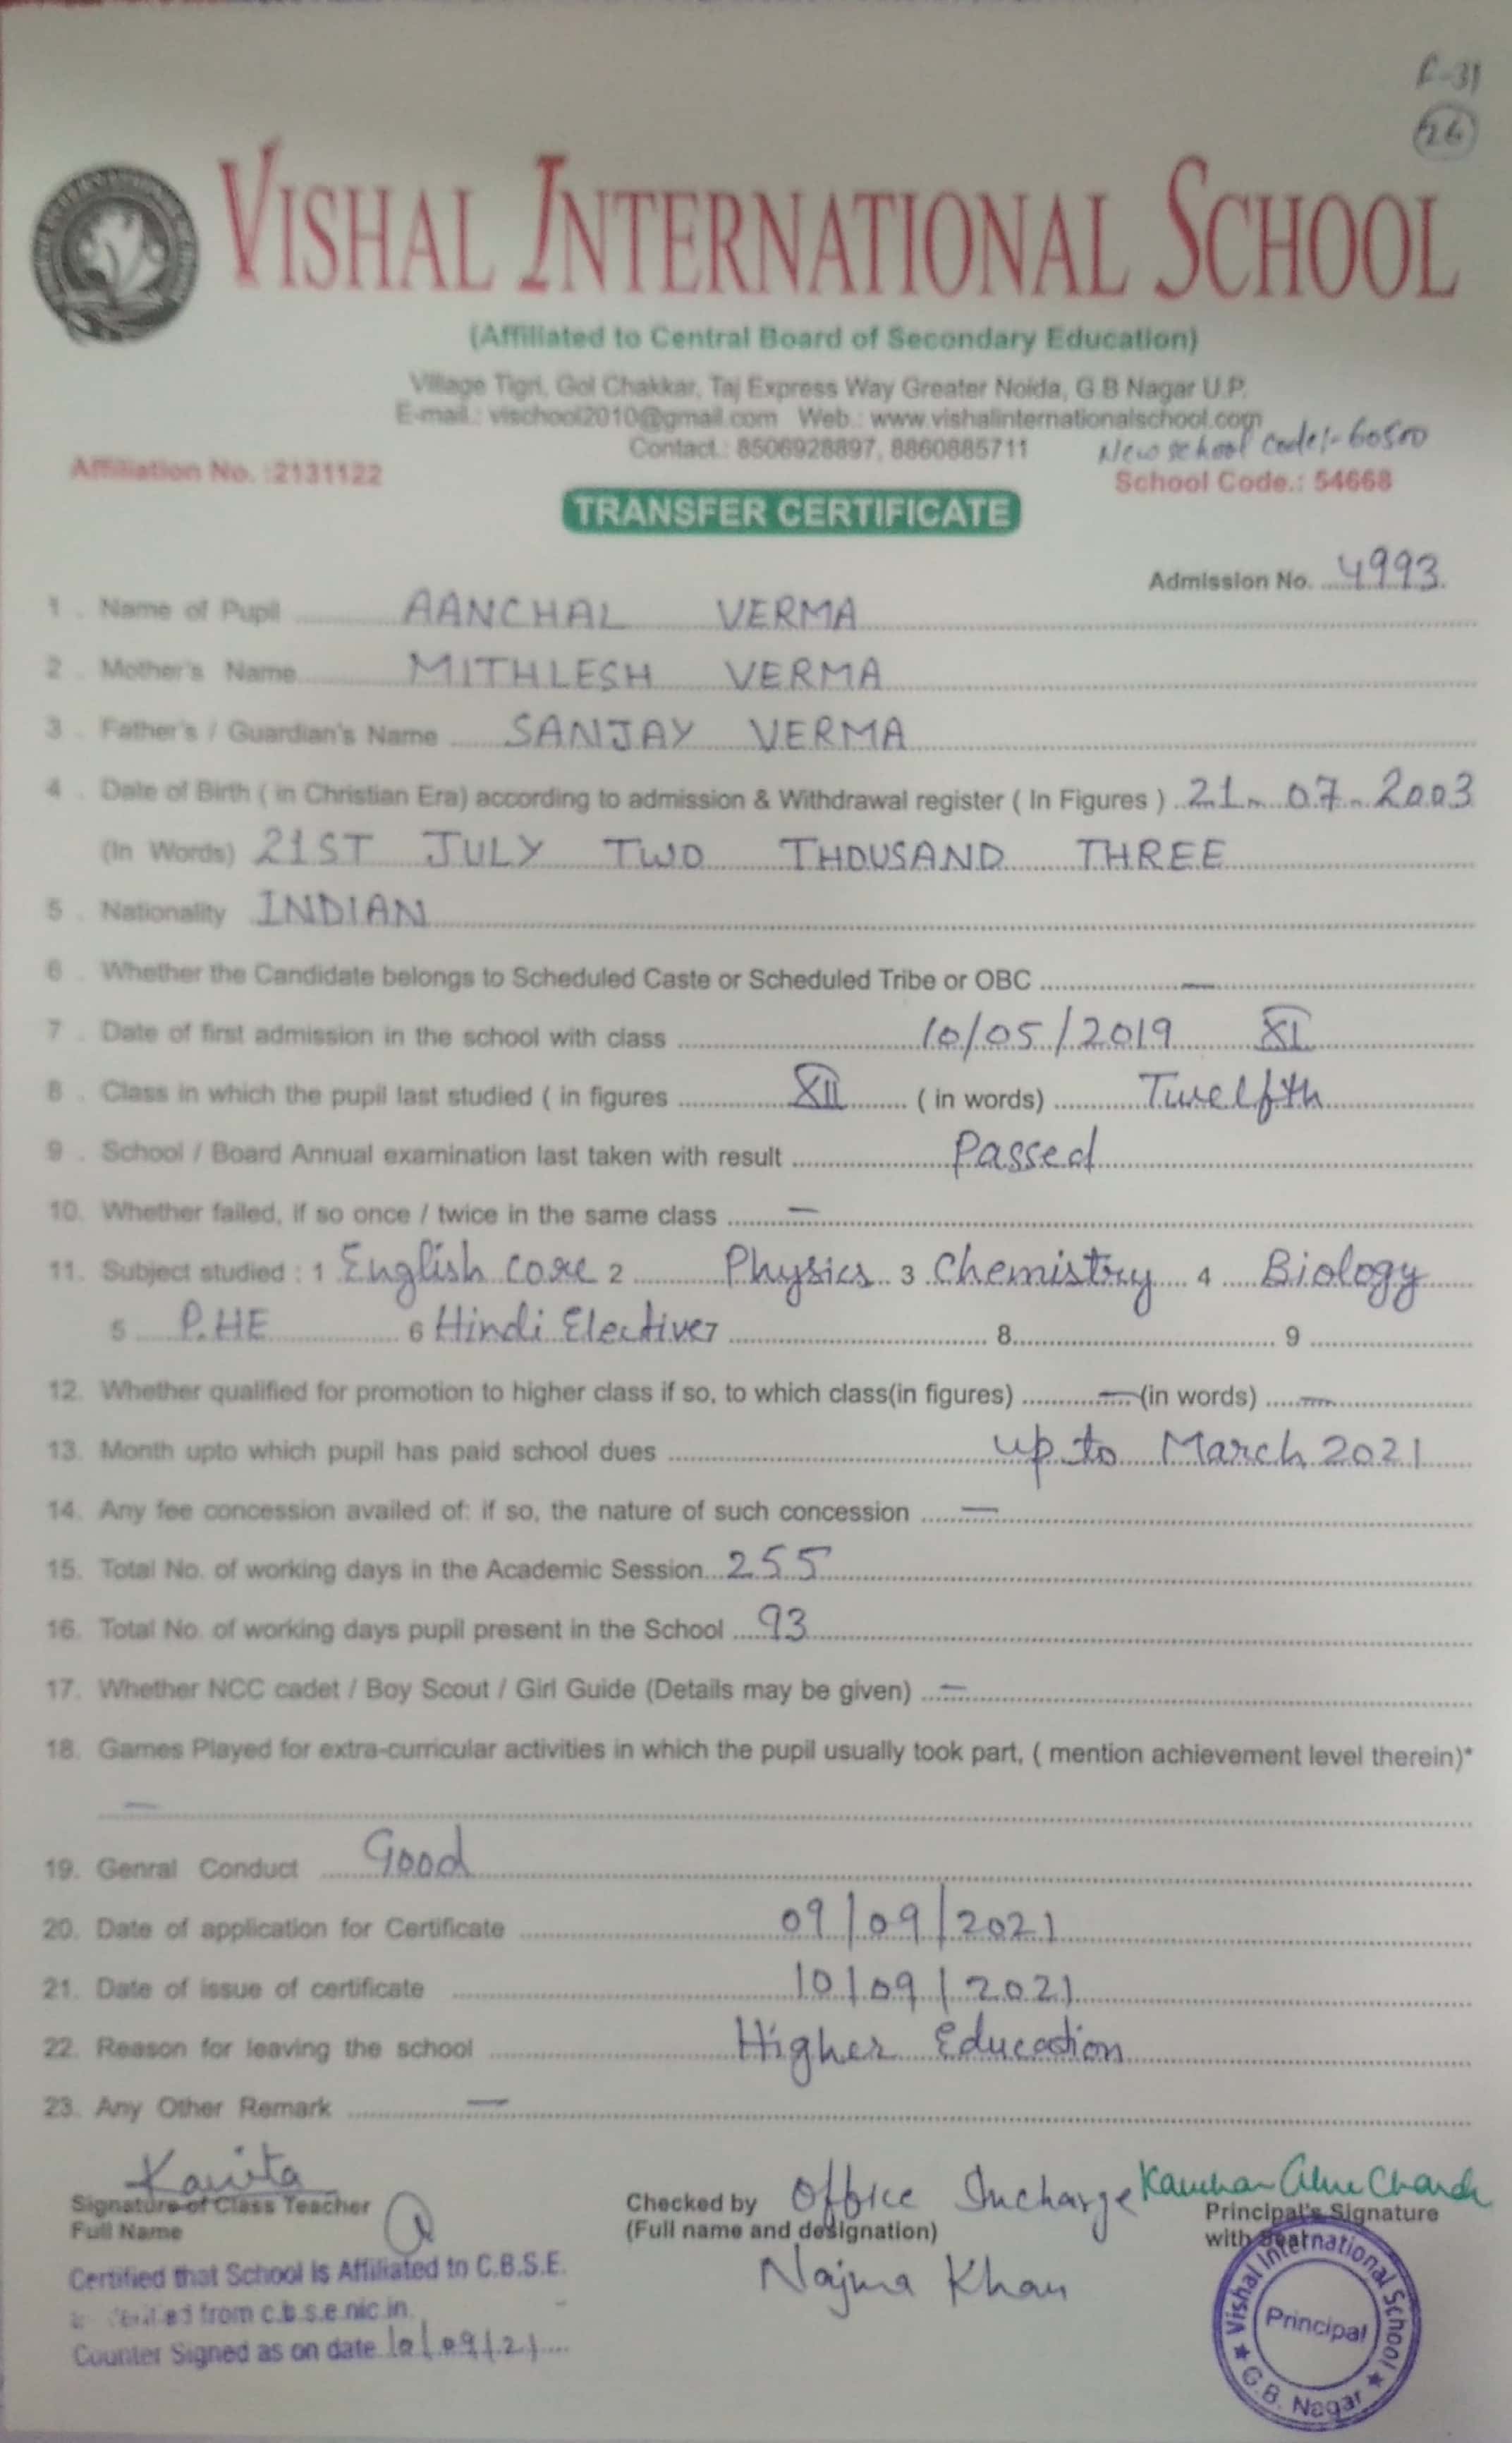 26
VISHAL INTERNATIONAL SCHOOL
(Affiliated to Central Board of Secondary Education)
Village Tigri, Gol Chakkar, Taj Express Way Greater Noida, G.B Nagar U.P.
E-mail.: vischool2010@gmail.com Web.: www.vishalinternationalschool.com
Contact.: 8506928897, 8860885711 New school code:- 60500
Affiliation No. :2131122 School Code.: 54668
TRANSFER CERTIFICATE
Admission No. 4993
1 . Name of Pupil AANCHAL VERMA
2 . Mother's Name MITHLESH VERMA
3 . Father's / Guardian's Name SANJAY VERMA
4 . Date of Birth ( in Christian Era) according to admission & Withdrawal register ( In Figures ) 21-07-2003
(In Words) 21ST JULY TWO THOUSAND THREE
5 . Nationality INDIAN
6 . Whether the Candidate belongs to Scheduled Caste or Scheduled Tribe or OBC —
7 . Date of first admission in the school with class 10/05/2019 XI
8 . Class in which the pupil last studied ( in figures XII ( in words) Twelfth
9 . School / Board Annual examination last taken with result Passed
10. Whether failed, if so once / twice in the same class —
11. Subject studied : 1 English core 2 Physics 3 Chemistry 4 Biology
5 P.HE 6 Hindi Elective 7 8 9
12. Whether qualified for promotion to higher class if so, to which class(in figures) — (in words) —
13. Month upto which pupil has paid school dues up to March 2021
14. Any fee concession availed of: if so, the nature of such concession —
15. Total No. of working days in the Academic Session 255
16. Total No. of working days pupil present in the School 93
17. Whether NCC cadet / Boy Scout / Girl Guide (Details may be given) —
18. Games Played for extra-curricular activities in which the pupil usually took part, ( mention achievement level therein)*
—
19. Genral Conduct Good
20. Date of application for Certificate 09/09/2021
21. Date of issue of certificate 10/09/2021
22. Reason for leaving the school Higher Education
23. Any Other Remark —
Kavita
Signature of Class Teacher
Full Name
Checked by Office Incharge
(Full name and designation)
Najma Khan
Principal's Signature
with Seal
Certified that School is Affiliated to C.B.S.E.
from c.b.s.e.nic.in.
Counter Signed as on date 10/09/21
Vishal International School
Principal
G.B. Nagar